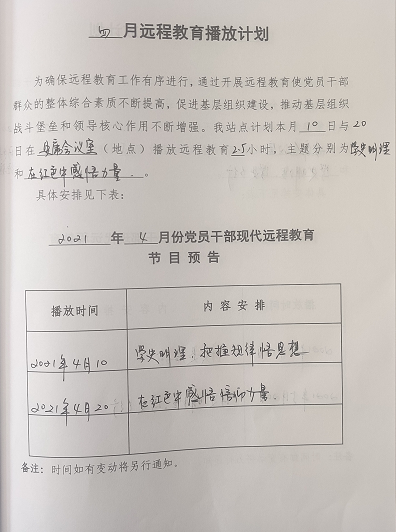 四月远程教育播放计划
为确保远程教育工作有序进行，通过开展远程教育使党员干部
群众的整体综合素质不断提高，促进基层组织建设，推动基层组织
战斗堡垒和领导核心作用不断增强。我站点计划本月10日与20
日在会议室（地点）播放远程教育2.5小时，主题分别为学史明理
和在红色中感悟力量。
具体安排见下表：
2021年4月份党员干部现代远程教育
节目预告
播放时间 内容安排
2021年4月10 学史明理、把握规律悟思想
2021年4月20 在红色中感悟信仰力量.
备注：时间如有变动将另行通知。